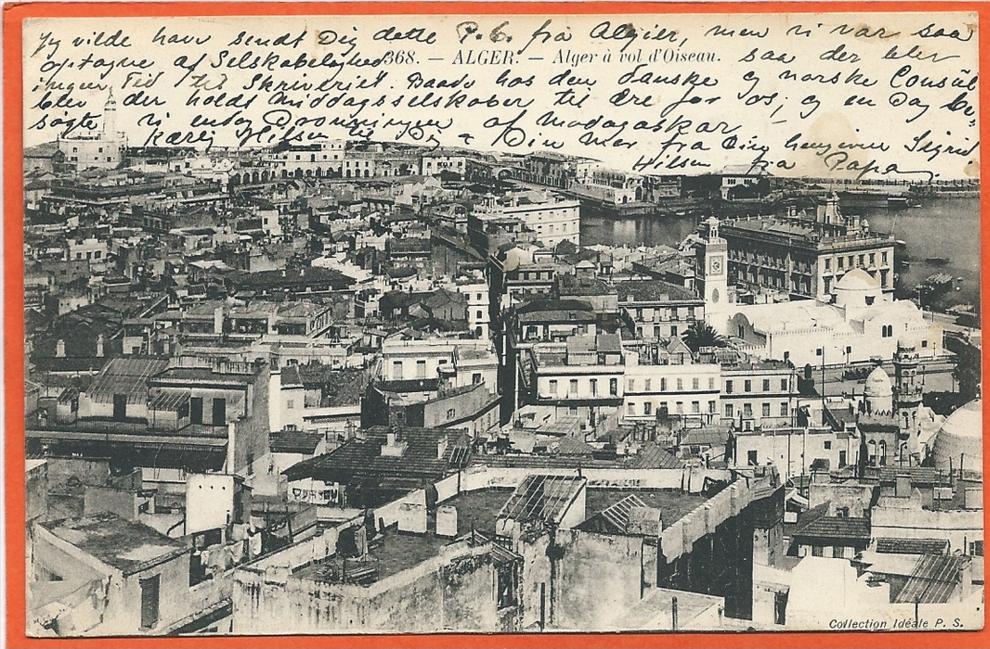 Jeg vilde have sendt Dig dette P.C. fra Algier, men vi var saa
optagne af Selskabelighed 368. — ALGER. — Alger à vol d'Oiseau. saa der blev
ingen Tid til Skriveriet. Baade hos den danske og norske Consül
blev der holdt Middagsselskaber til Ære for os, og en Dag be-
søgte vi endog Dronningen af Madagaskar.
Kærlig Hilsen til Dig & Din Mor fra Din hengivne Sigrid
Hilsen fra Papa.
Collection Idéale P. S.